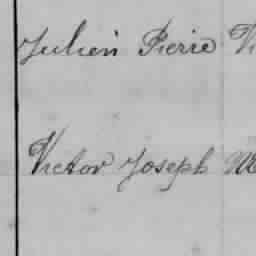 Julien Pierre
Victor Joseph